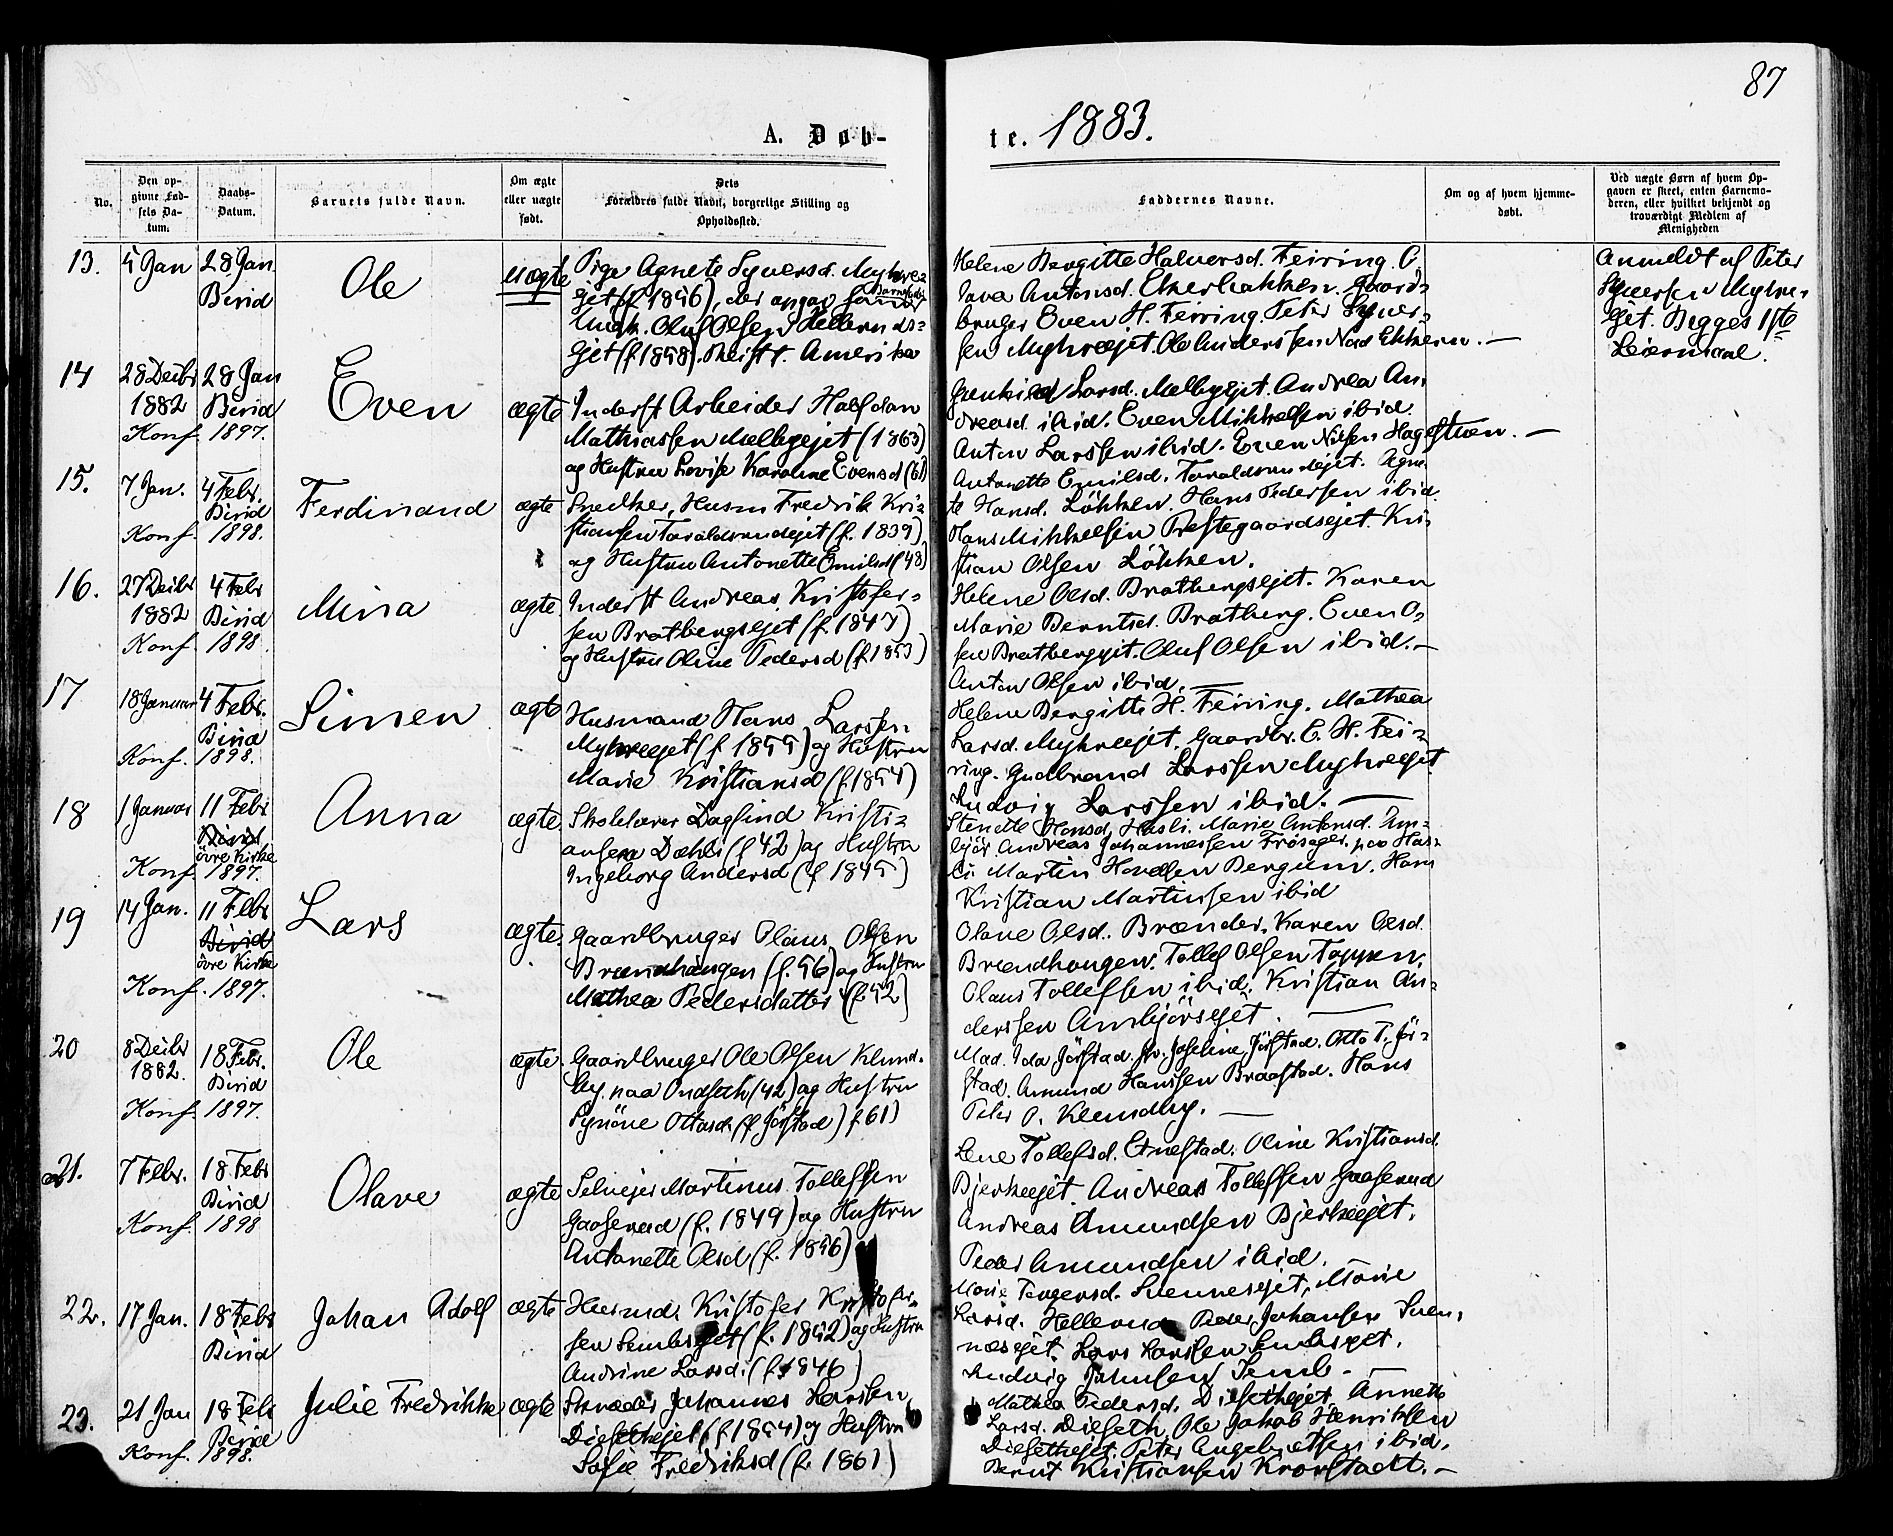 87
A. Døb-
te. 1883.
No.
Den op-
givne Fød-
sels Da-
tum.
Daabs-
Datum.
Barnets fulde Navn.
Om ægte
eller uægte
født.
Dets
Forældres fulde Navn, borgerlige Stilling og
Opholdssted.
Faddernes Navne.
Om og af hvem hjemme-
døbt.
Ved uægte Børn af hvem Op-
gaven er skeet, enten Barnemo-
deren, eller hvilket bekjendt og
troværdigt Medlem af
Menigheden
13.
5 Jan
28 Jan
Birid
Ole
uægte
Pige Agnete Syversd. Myhre-
ejet (f. 1856), der opgav som Barnefader
Ungk. Oluf Olsen Hellerud-
ejet (f. 1858). Reist t. Amerika
Helene Bergitte Halversd. Feiring. O
lava Antonsd. Ekerbakken. Gaard-
bruger Even H. Feiring. Peter Syver-
sen Myhreejet. Ole Anderssen Nød Ekkern. —
Anmeldt af Peter
Syversen Myhre-
ejet. Begges 1ste
Leiermaal.
14
28 Decbr
1882
Konf. 1897.
28 Jan
Birid
Even
ægte
Inderst Arbeider Halfdan
Mathiassen Mælbyejet (1863)
og Hustru Lovise Karoline Evensd (61)
Larsd. Mælbyejet. Andrea An-
dreasd. ibid. Even Mikkelsen ibid.
Anton Larssen ibid. Even Nilsen Hagestuen. —
15.
7 Jan.
Konf. 1898.
4 Febr.
Birid
Ferdinand
ægte
Snedker, Husm Fredrik Kri-
stiansen Taraldsrudejet (f. 1839)
og Hustru Antonette Emilsd (48)
Antonette Emilsd. Taraldsrudejet. Agne-
te Hansd. Løkken. Hans Pedersen ibid.
Hans Mikkelsen Prestegaardsejet. Kri-
stian Olsen Løkken.
16.
27 Decbr
1882
Konf. 1898.
4 Febr
Birid
Mina
ægte
Inderst Andreas Kristofer-
sen Bratbergsejet (f. 1847)
og Hustru Oline Pedersd (f. 1853)
Helene Olsd. Bratbergsejet. Karen
Marie Berntsd. Bratberg. Even O-
sen Bratbergejet. Oluf Olsen ibid. —
Anton Olsen ibid. —
17
18 Januar
Konf. 1898.
4 Febr.
Birid
Simen
ægte
Husmand Hans Larssen
Myhreejet (f. 1855) og Hustru
Marie Kristiansd (f. 1854)
Helene Bergitte H. Feiring. Mathea
Larsd. Myhreejet. Gaardbr. E. H. Fei-
ring. Gudbrand Larssen Myhreejet
Ludvig Larssen ibid. —
18
1 Januar
Konf. 1897.
11 Febr
Birid
övre Kirke
Anna
ægte
Skolelærer Dagfind Kristi-
ansen Dæhli (f 42) og Hustru
Ingeborg Andersd (f 1845)
Hansd. Hasli. Marie Antonsd. Am-
bjør. Andreas Johannessen Frøsager. paa Has-
li. Martin Bergum. Hans
Kristian Martinsen ibid
19
14 Jan.
Konf. 1897.
11 Febr
Birid
övre Kirke
Lars
ægte.
Gaardbruger Olaus Olsen
Brændhaugen (f. 56) og Hustru
Mathea Pedersdatter (f. 52)
Olane Olsd. Brænden. Karen Olsd.
Brændhaugen. Tollef Olsen Toppen.
Olaus Tollefsen ibid. Kristian An-
derssen Ambjörsejet. —
20
8 Decbr
1882.
Konf. 1897.
18 Febr.
Birid
Ole
ægte
Gaardbruger Ole Olsen Klund-
by paa Onsoch (42) og Hustru
Synöve Ottasd. (f Jörstad) f 61)
Mad. Ida Jörstad. Josefine Jörstad. Otto T. Jör-
stad. Amund Hanssen Braastad. Hans
Peter O. Klundby. —
21.
7 Febr.
Konf. 1898
18 Febr
Birid
Olave
ægte
Selvejer Martinus Tollefsen
Gaaserud (f. 1849) og Hustru
Antonette Olsd (f. 1856)
Lene Tollefsd. Etnestad. Oline Kristiansd.
Bjerkeejet. Andreas Tollefsen Gaaserud
Andreas Amundsen Bjerkeejet.
Peder Amundsen ibid.
22.
17 Jan.
18 Febr
Birid
Johan Adolf
ægte
Husmd. Kristofer Kristofer-
sen Sembsejet (f. 1852) og Hustru
Andrine Larsd. (f. 1846)
Marie Svennesejet, Marie
Larsd. Hellerud. Peder Johansen Sven-
næsejet. Lars Larssen Sembsejet.
Ludvig Johnsen Semb. —
23.
21 Jan
Konf. 1898.
18 Febr
Birid
Julie Fredrikke
ægte
Skræder Johannes Larssen
Diesethejet (f 1854) og Hustru
Sofie Fredriksd (f. 1861)
Mathea Pedersd. Diesethejet. Annette
Larsd. Dieseth. Ole Jakob Henriksen
Diesethejet. Peter Angelvætsen ibid.
Bernt Kristiansen Kravstadt. —